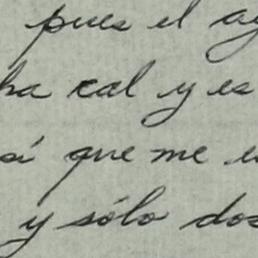 pues el ag
ha cal y es
si que me e
y sólo dos